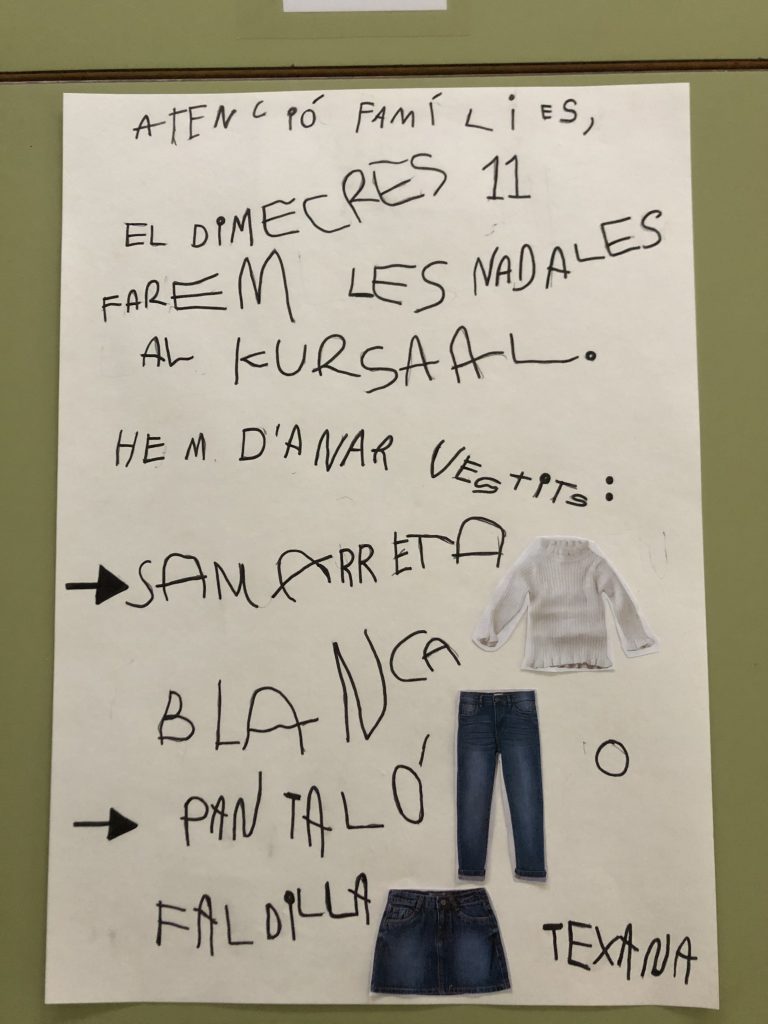 ATENCIÓ FAMÍLIES,
EL DIMECRES 11
FAREM LES NADALES
AL KURSAAL.
HEM D'ANAR VESTITS:
SAMARRETA
BLANCA
PANTALÓ O
FALDILLA TEXANA